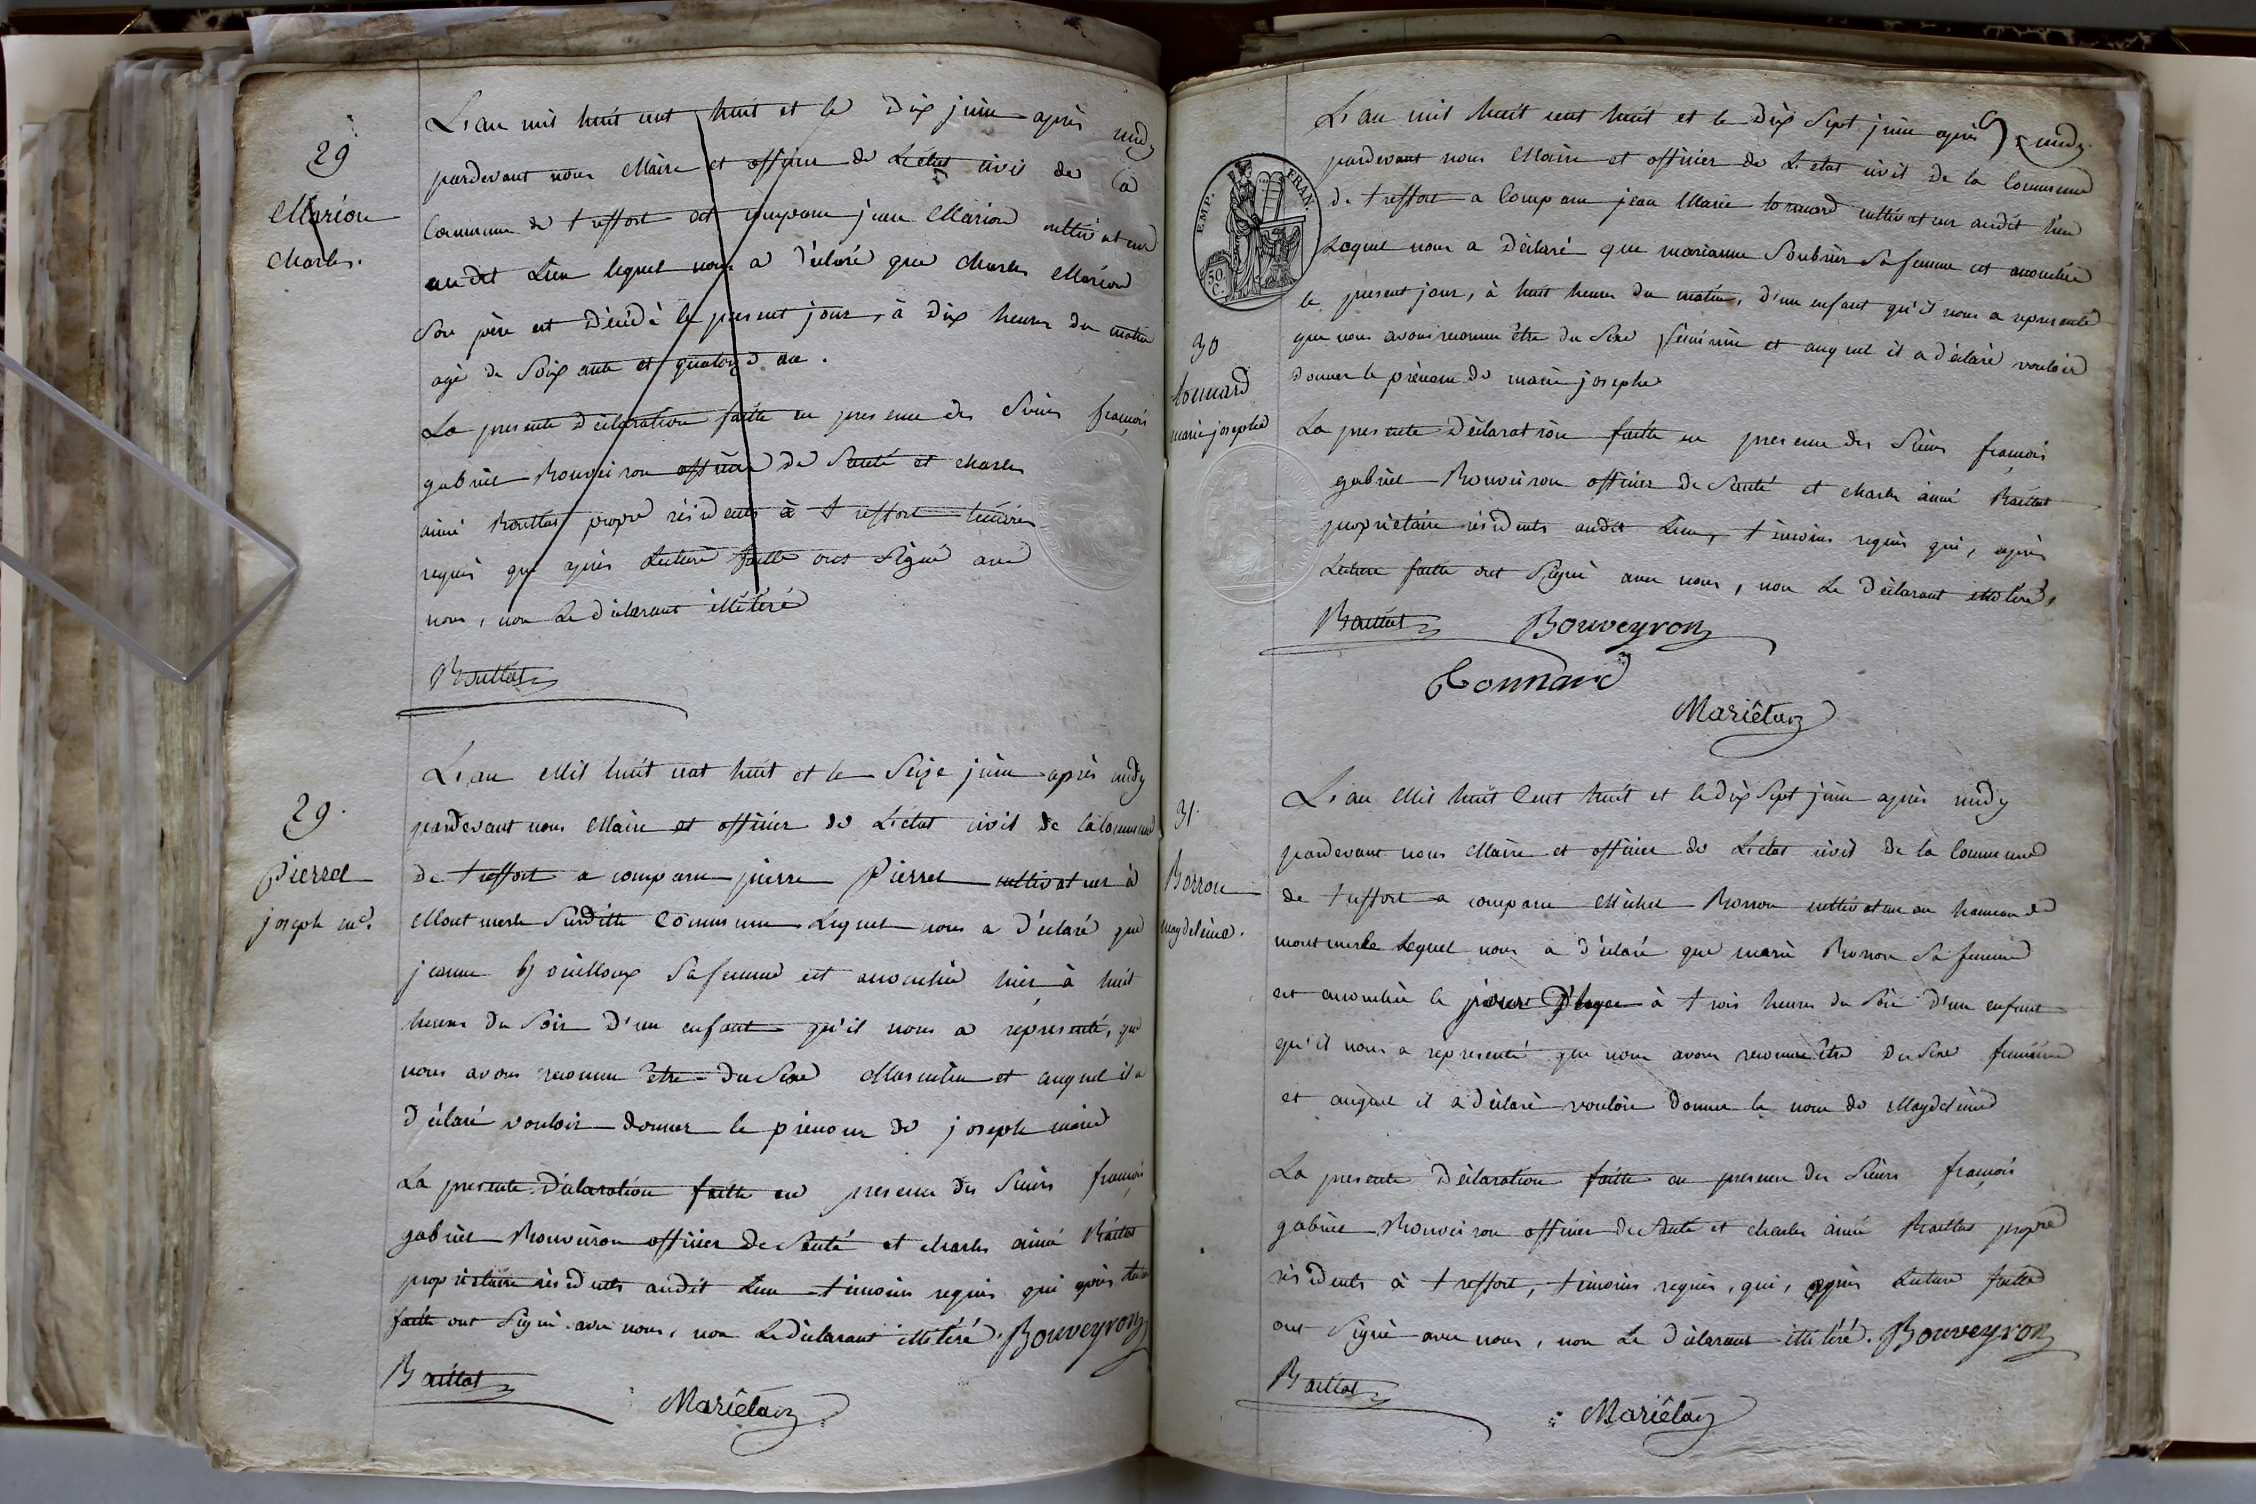 29
Marion
Charles.
L'an mil huit cent huit et le dix juin après midy
pardevant nous Maire et officier de L'état civil de la
Commune de treffort est comparu jean Marion cultivateur
audit Lieu lequel nous a déclaré que charles Marion
Son père est décédé le présent jour, à dix heures du matin
agé de Soixante et quatorze ans.
La presente déclaration faitte en presence des Sieurs françois
gabriel Bouveiron officier de Santé et charles
aimé Baillat propre résidents à treffort témoins
requis qui après Lecture faitte ont Signé avec
nous, non Le déclarant illétéré
Baillat
29.
Pierrel
joseph me.
L'an Mil huit cent huit et le Seize juin après midy
pardevant nous Maire et officier de L'état civil de la Commune
de treffort a comparu pierre Pierrel cultivateur à
Montmerle Surditte Commune Lequel nous a déclaré que
jeanne Sa femme est accouchée hier à huit
heures du Soir d'un enfant qu'il nous a representé, que
nous avons reconnu être du Sexe Masculin et auquel il a
déclaré vouloir donner le prénom de joseph marie
La presente déclaration faitte en presence des Sieurs françois
gabriel Bouveiron officier de Santé et charles aimé Baillat
propriétaire résidents audit Lieu témoins requis qui après lecture
faitte ont Signé avec nous, non Le déclarant illétéré. Bouveyron
Baillat
Mariétan
EMP. FRAN.
50 C.
30
tonnard
marie josephe
L'an mil huit cent huit et le dix Sept juin après midy
pardevant nous Maire et officier de L'état civil de la Commune
de treffort a Comparu jean Marie tonnard cultivateur audit lieu
Lequel nous a déclaré que marianne Soubrier Sa femme est accouchée
le present jour, à huit heures du matin, d'un enfant qu'il nous a representé
que nous avons reconnu être du Sexe féminin et auquel il a déclaré vouloir
donner le prénom de marie josephe
La presente déclaration faitte en presence des Sieurs françois
gabriel Bouveiron officier de Santé et charles aimé Baillat
propriétaire résidents audit Lieu, témoins requis qui, après
Lecture faitte ont Signé avec nous, non Le déclarant illétéré,
Baillat Bouveyron
Tonnard
Mariétan
31.
Borron
magdeleine.
L'an Mil huit Cent huit et le dix Sept juin après midy
pardevant nous Maire et officier de L'état civil de la Commune
de treffort a comparu Michel Borron cultivateur au hameau de
montmerle Lequel nous a déclaré que marie Borron Sa femme
est accouchée le jour d'hyer à trois heures du Soir d'un enfant
qu'il nous a representé que nous avons reconnu être du Sexe féminin
et auquel il a déclaré vouloir donner le nom de Magdeleine
La presente déclaration faitte en presence des Sieurs françois
gabriel Bouveiron officier de Santé et charles aimé Baillat propre
résidents à treffort, témoins requis, qui, après Lecture faitte
ont Signé avec nous, non Le déclarant illétéré. Bouveyron
Baillat
Mariétan